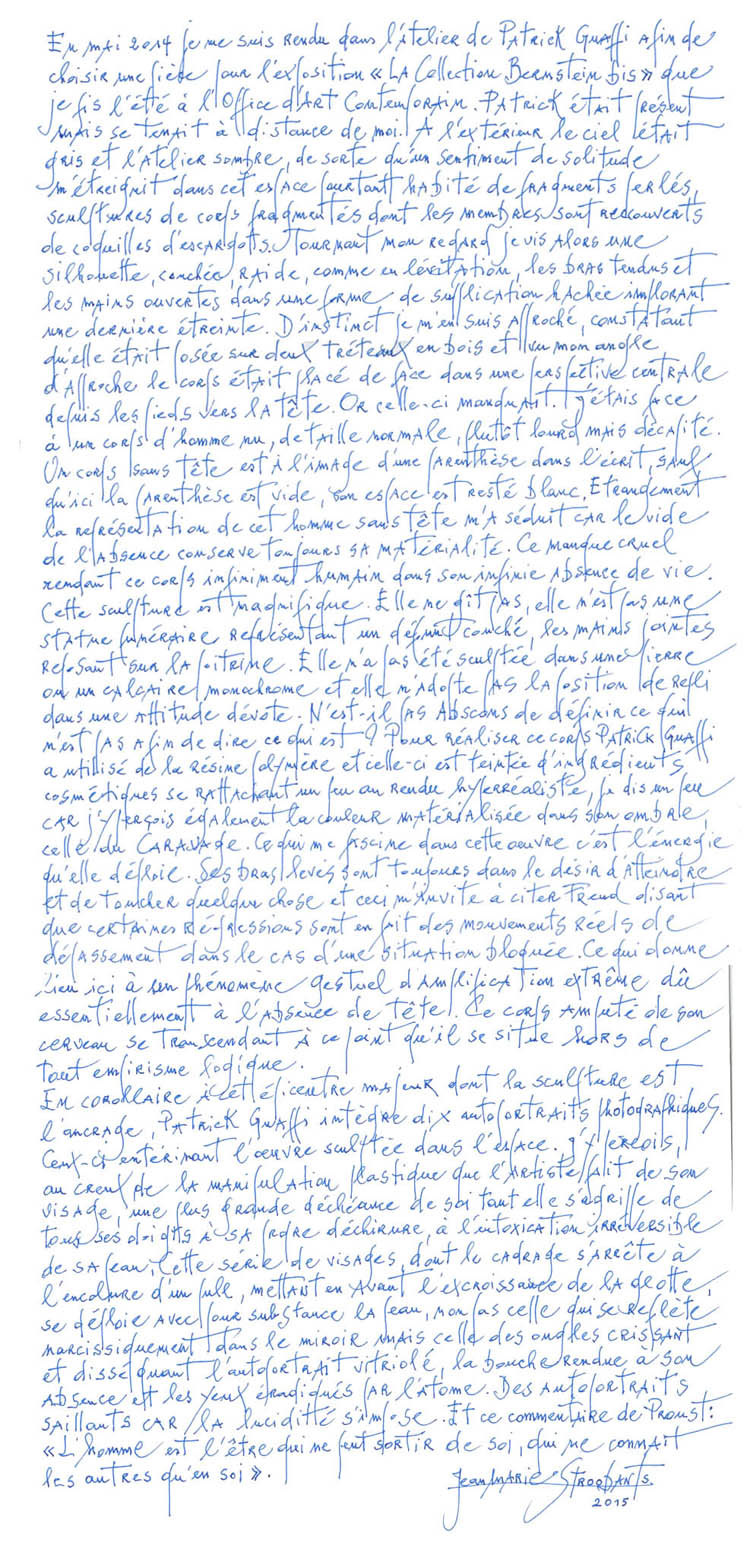 En mai 2014 je me suis rendu dans l'atelier de Patrick Guaffi afin de
choisir une pièce pour l'exposition « La Collection Bernstein bis » que
je fis l'été à l'Office d'Art Contemporain. Patrick était présent
mais se tenait à distance de moi. A l'extérieur le ciel était
gris et l'atelier sombre, de sorte qu'un sentiment de solitude
m'étreignit dans cet espace pourtant habité de fragments perlés,
sculptures de corps fragmentés dont les membres sont recouverts
de coquilles d'escargots. Tournant mon regard je vis alors une
silhouette, couchée, raide, comme en lévitation, les bras tendus et
les mains ouvertes dans une forme de supplication hachée implorant
une dernière étreinte. D'instinct je m'en suis approché, constatant
qu'elle était posée sur deux tréteaux en bois et vu mon angle
d'approche le corps était placé de face dans une perspective centrale
depuis les pieds vers la tête. Or celle-ci manquait. J'étais face
à un corps d'homme nu, de taille normale, plutôt lourd mais décapité.
Un corps sans tête est à l'image d'une parenthèse dans l'écrit, sauf
qu'ici la parenthèse est vide, son espace est resté blanc. Etrangement
la représentation de cet homme sans tête m'a séduit car le vide
de l'absence conserve toujours sa matérialité. Ce manque cruel
rendant ce corps infiniment humain dans son infinie absence de vie.
Cette sculpture est magnifique. Elle ne gît pas, elle n'est pas une
statue funéraire représentant un défunt couché, les mains jointes
reposant sur la poitrine. Elle n'a pas été sculptée dans une pierre
ou un calcaire monochrome et elle n'adopte pas la position de repli
dans une attitude dévote. N'est-il pas abscons de définir ce qui
n'est pas afin de dire ce qui est ? Pour réaliser ce corps Patrick Guaffi
a utilisé de la résine polymère et celle-ci est teintée d'ingrédients
cosmétiques se rattachant un peu au rendu hyperréaliste, je dis un peu
car j'y perçois également la couleur matérialisée dans son ombre,
celle du Caravage. Ce qui me fascine dans cette oeuvre c'est l'énergie
qu'elle déploie. Ses bras levés sont toujours dans le désir d'atteindre
et de toucher quelque chose et ceci m'invite à citer Freud disant
que certaines régressions sont en fait des mouvements réels de
dépassement dans le cas d'une situation bloquée. Ce qui donne
lieu ici à un phénomène gestuel d'amplification extrême dû
essentiellement à l'absence de tête. Ce corps amputé de son
cerveau se transcendant à ce point qu'il se situe hors de
tout empirisme logique.
En corollaire à cet épicentre majeur dont la sculpture est
l'ancrage, Patrick Guaffi intègre dix autoportraits photographiques.
Ceux-ci entérinant l'oeuvre sculptée dans l'espace. J'y perçois,
au creux de la manipulation plastique que l'artiste fait de son
visage, une plus grande déchéance de soi tant elle s'agrille de
tous ses doigts à sa propre déchirure, à l'intoxication irréversible
de sa peau. Cette série de visages, dont le cadrage s'arrête à
l'encolure d'un pull, mettant en avant l'excroissance de la glotte,
se déploie avec pour substance la peau, non pas celle qui se reflète
narcissiquement dans le miroir mais celle des ongles crissant
et disséquant l'autoportrait vitriolé, la bouche rendue à son
absence et les yeux éradiqués par l'atome. Des autoportraits
saillants car la luciditté s'impose. Et ce commentaire de Proust :
« L'homme est l'être qui ne peut sortir de soi, qui ne connaît
les autres qu'en soi ».
Jean-Marie Stroobants.
2015